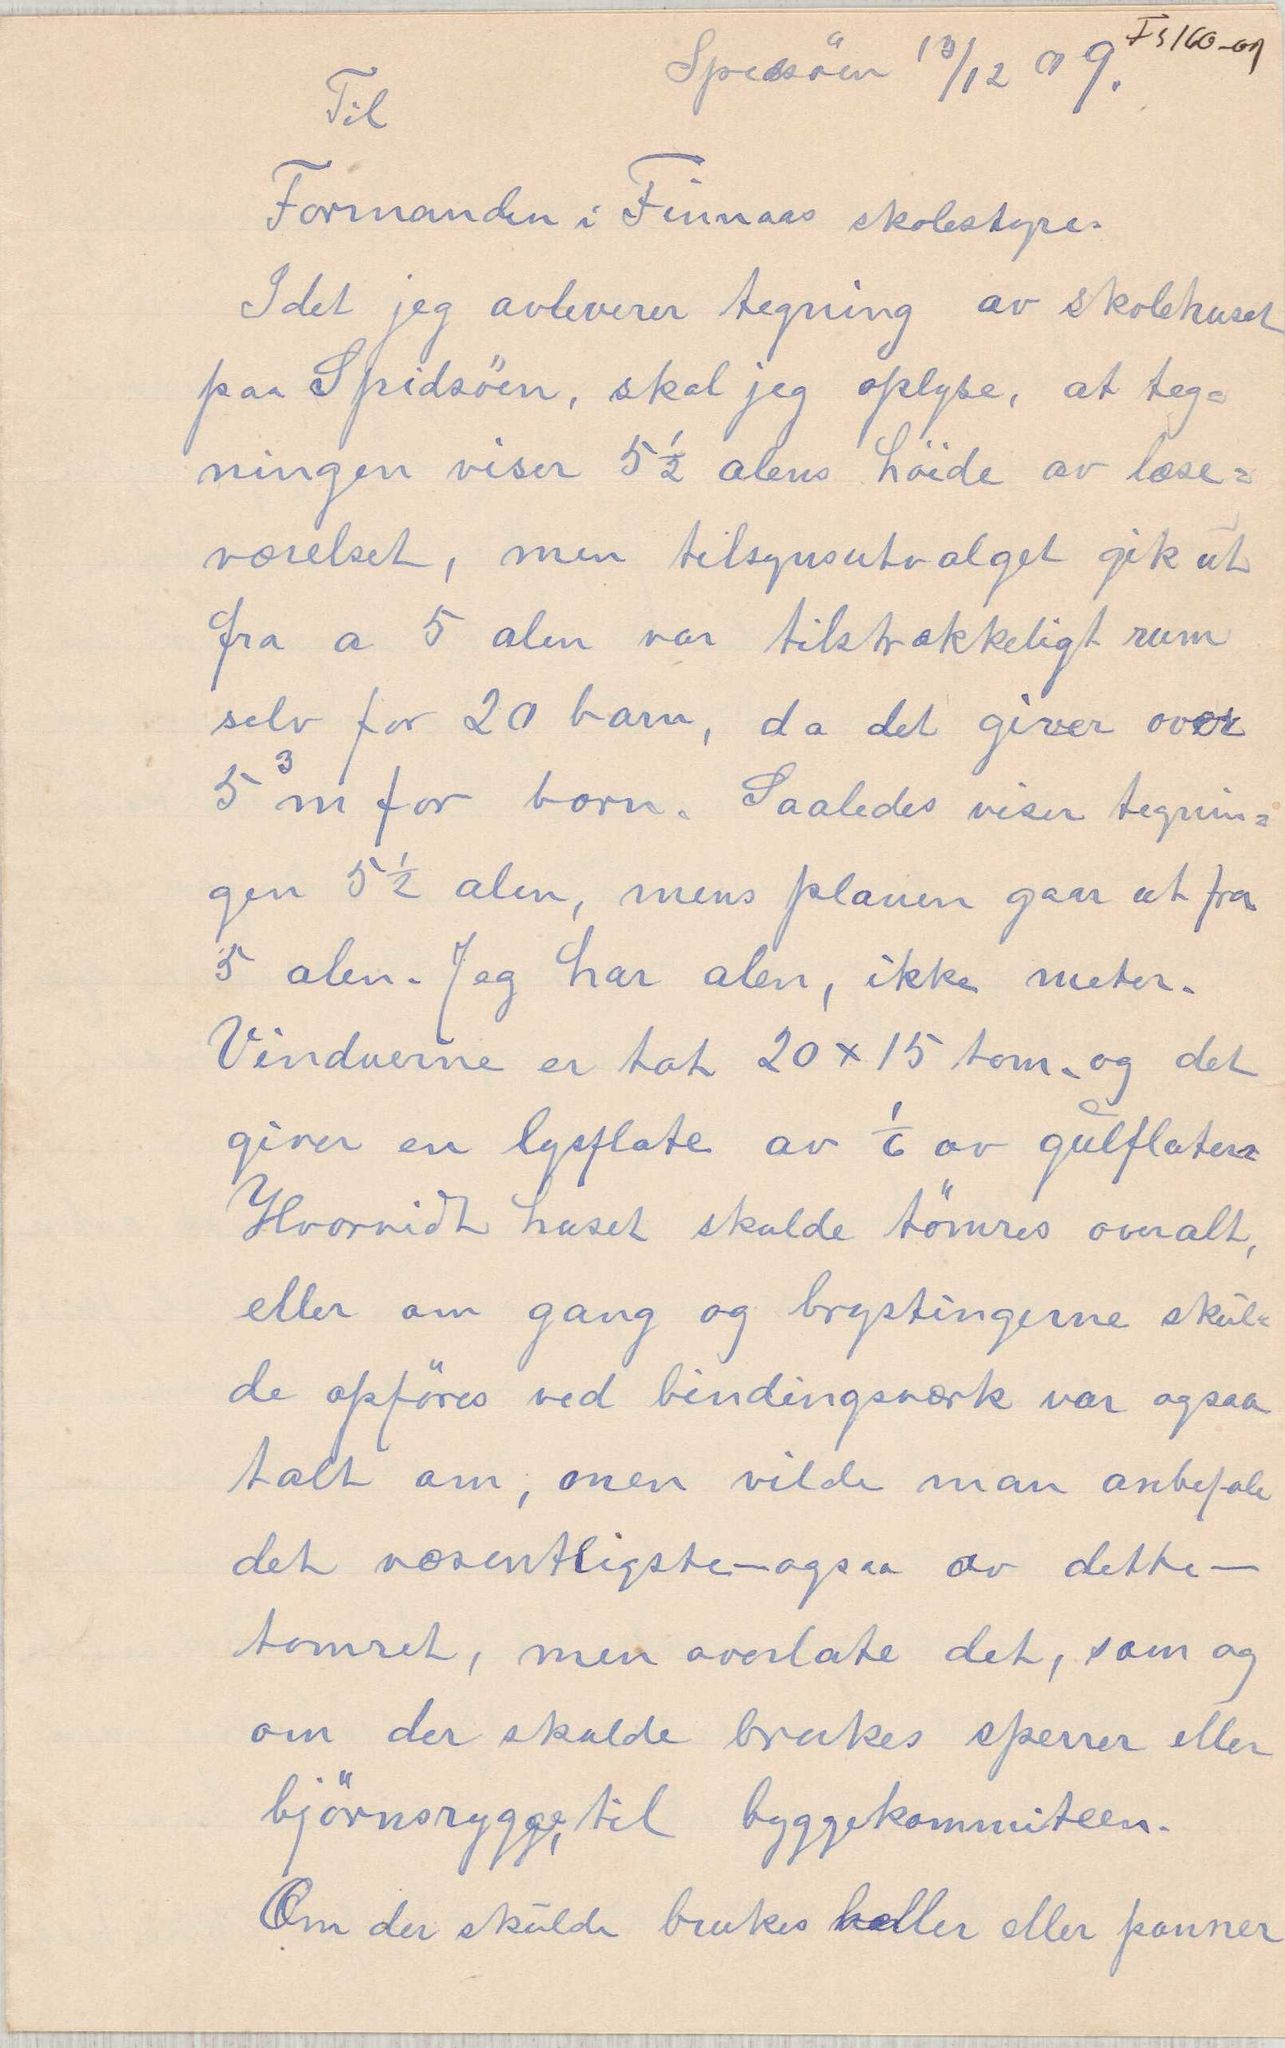 Spidsöen 13/12 09. Fs/60-09
Til
Formanden i Finnaas skolestyre.
Idet jeg avleverer tegning av skolehuset
paa Spidsöen, skal jeg oplyse, at teg=
ningen viser 5½ alens höide av læse=
værelset, men tilsynsutvalget gik ut
fra a 5 alen var tilstrækkeligt rum
selv for 20 barn, da det giver over
5 ³m for barn. Saaledes viser tegnin=
gen 5½ alen, mens planen gaar ut fra
5 alen. Jeg har alen, ikke meter.
Vinduerne er tat 20 x 15 tom. og det
giver en lysflate av 1/6 av gulflaten.
Hvorvidt huset skulde tömres overalt,
eller om gang og brystingerne skul=
de opföres ved bindingsværk var ogsaa
talt om, men vilde man anbefale
det væsentligste – ogsaa av dette –
tomret, men overlate det, som og
om der skulde brukes sperrer eller
björnsrygge, til byggekommiteen.
Om der skulde brukes heller eller panner